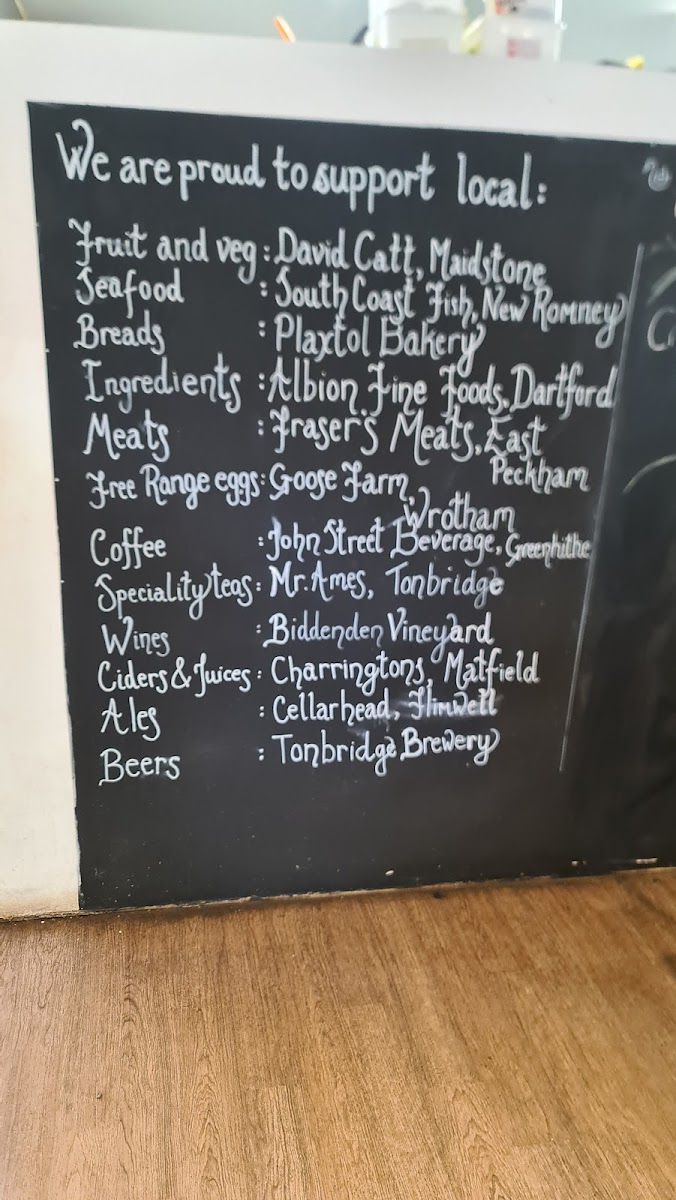 We are proud to support local:
Fruit and veg : David Catt, Maidstone
Seafood : South Coast Fish, New Romney
Breads : Plaxtol Bakery
Ingredients : Albion Fine Foods, Dartford
Meats : Fraser's Meats, East
Peckham
Free Range eggs : Goose Farm,
Wrotham
Coffee : John Street Beverage, Greenhithe
Speciality teas : Mr. Ames, Tonbridge
Wines : Biddenden Vineyard
Ciders & Juices : Charringtons, Matfield
Ales : Cellarhead, Flimwell
Beers : Tonbridge Brewery